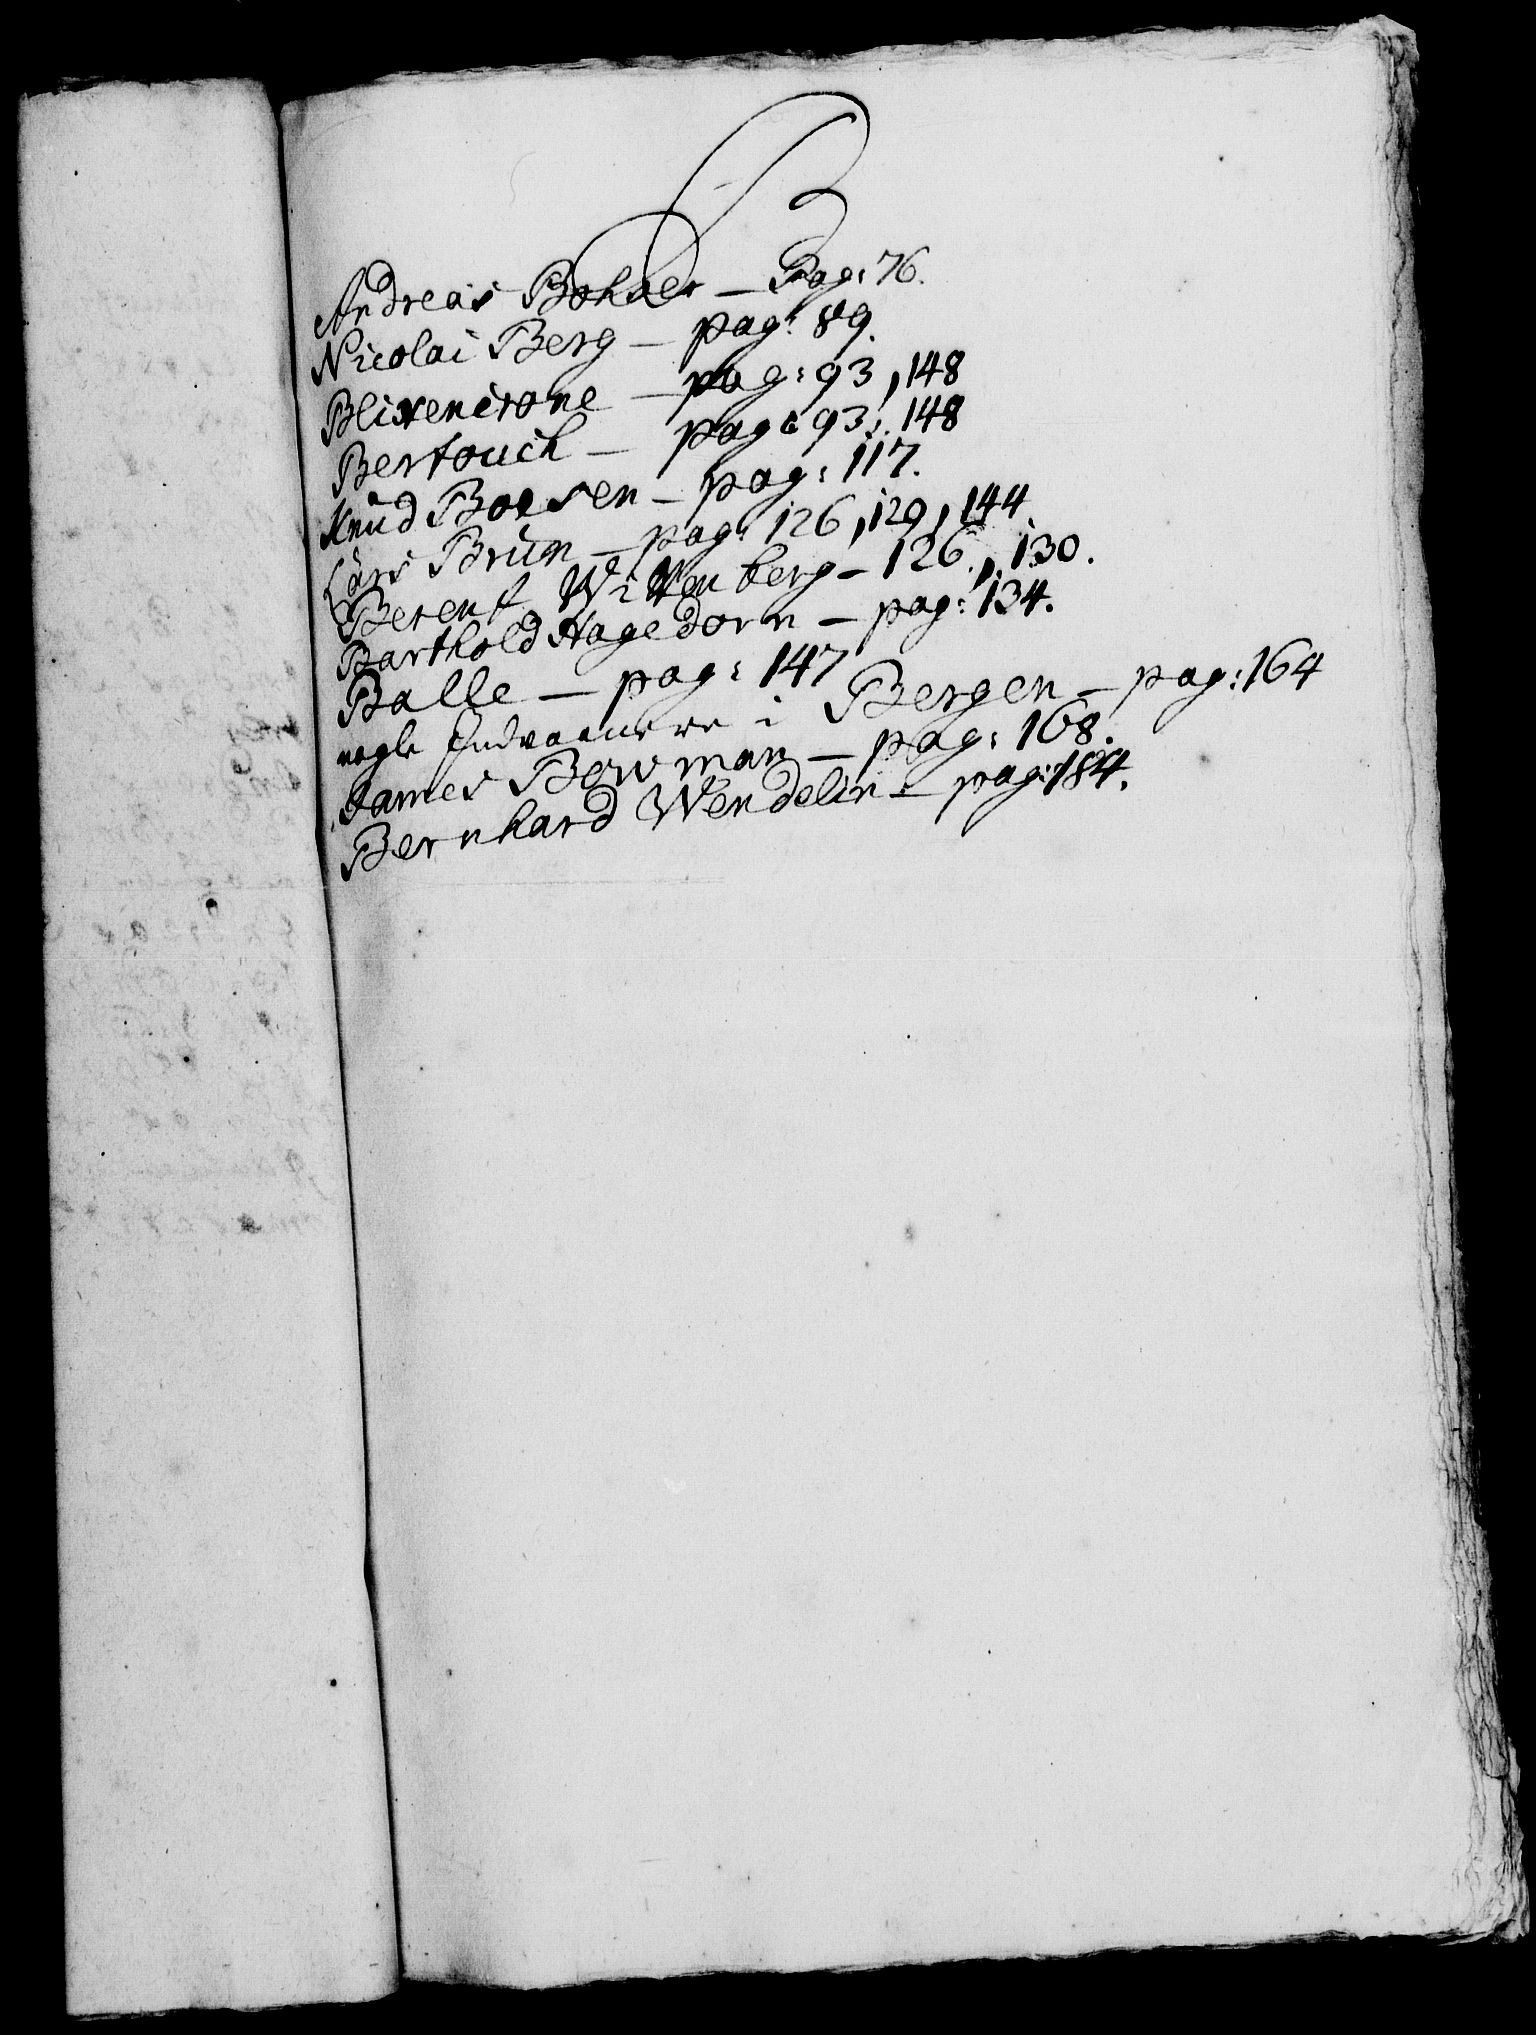 B
Andreas Bohaer – Pag: 76.
Nicolai Berg – pag: 89.
Blixencrone – pag: 93, 148
Bertouch – pag: 93, 148
Knud Boesen – pag: 117.
Lars Brun – pag: 126, 129, 144
Berent Wittenberg – 126, 130.
Barthold Hagedorn – pag: 134.
Balle – pag: 147
nogle Indvaanere i Bergen – pag: 164
James Bowman – pag: 168.
Bernhard Wendelin – pag: 184.